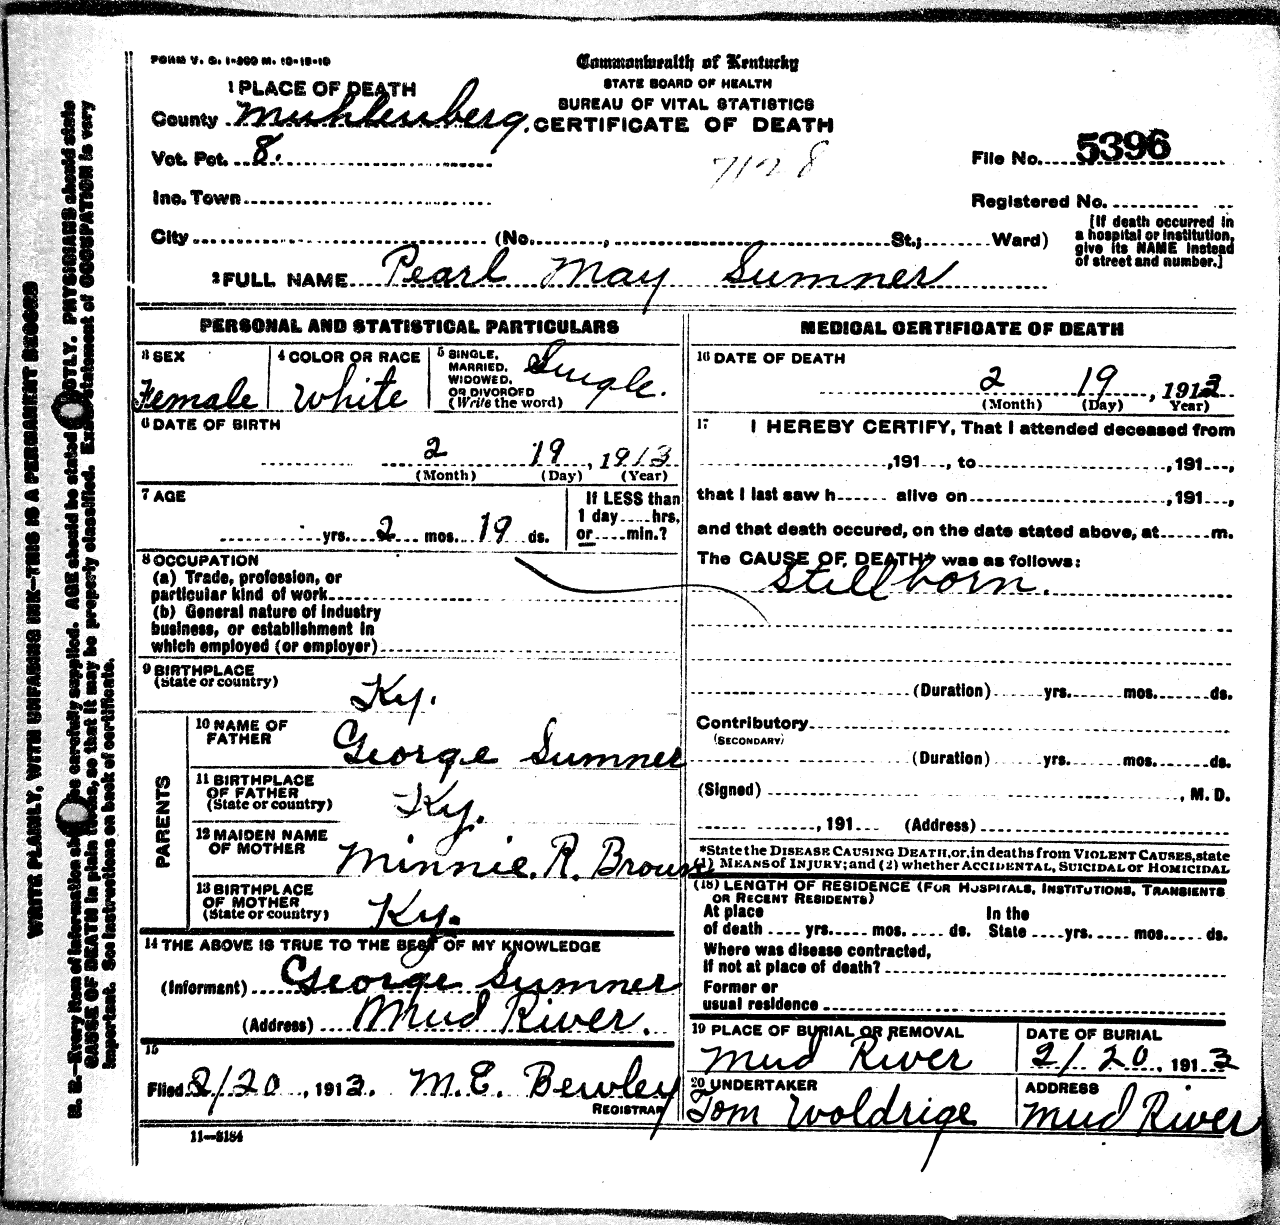 FORM V. S. 1-500 M. 10-18-10
Commonwealth of Kentucky
STATE BOARD OF HEALTH
BUREAU OF VITAL STATISTICS
CERTIFICATE OF DEATH
1 PLACE OF DEATH
County Muhlenberg.
Vot. Pct. 8.
7128
File No. 5396
Inc. Town
Registered No.
City (No. , St.; Ward)
[If death occurred in a hospital or institution, give its NAME instead of street and number.]
2 FULL NAME Pearl May Sumner
PERSONAL AND STATISTICAL PARTICULARS
3 SEX
Female
4 COLOR OR RACE
White
5 SINGLE, MARRIED, WIDOWED, OR DIVORCED (Write the word)
Single.
6 DATE OF BIRTH
2 19, 1913
(Month) (Day) (Year)
7 AGE
yrs. 2 mos. 19 ds.
If LESS than 1 day hrs. or min.?
8 OCCUPATION
(a) Trade, profession, or
particular kind of work
(b) General nature of industry
business, or establishment in
which employed (or employer)
9 BIRTHPLACE
(State or country)
Ky.
PARENTS
10 NAME OF FATHER
George Sumner
11 BIRTHPLACE OF FATHER (State or country)
Ky.
12 MAIDEN NAME OF MOTHER
Minnie. R. Brown
13 BIRTHPLACE OF MOTHER (State or country)
Ky.
14 THE ABOVE IS TRUE TO THE BEST OF MY KNOWLEDGE
(Informant) George Sumner
(Address) Mud River.
15
Filed 2/20, 1913. M.E. Bewley
REGISTRAR
11-3184
MEDICAL CERTIFICATE OF DEATH
16 DATE OF DEATH
2 19, 1913
(Month) (Day) Year)
17 I HEREBY CERTIFY, That I attended deceased from
,191 , to ,191 ,
that I last saw h alive on ,191 ,
and that death occured, on the date stated above, at m.
The CAUSE OF DEATH* was as follows:
Stillborn.
(Duration) yrs. mos. ds.
Contributory
(SECONDARY)
(Duration) yrs. mos. ds.
(Signed) , M. D.
, 191 (Address)
*State the DISEASE CAUSING DEATH, or, in deaths from VIOLENT CAUSES, state
(1) MEANS of INJURY; and (2) whether ACCIDENTAL, SUICIDAL or HOMICIDAL
(18) LENGTH OF RESIDENCE (FOR HOSPITALS, INSTITUTIONS, TRANSIENTS
OR RECENT RESIDENTS)
At place of death yrs. mos. ds. In the State yrs. mos. ds.
Where was disease contracted,
If not at place of death?
Former or
usual residence
19 PLACE OF BURIAL OR REMOVAL
Mud River
DATE OF BURIAL
2/20, 1913
20 UNDERTAKER
Tom Woldrige
ADDRESS
Mud River
WRITE PLAINLY, WITH UNFADING INK—THIS IS A PERMANENT RECORD
N. B.—Every item of information should be carefully supplied. AGE should be stated EXACTLY. PHYSICIANS should state
CAUSE OF DEATH in plain terms, so that it may be properly classified. Exact statement of OCCUPATION is very
important. See instructions on back of certificate.